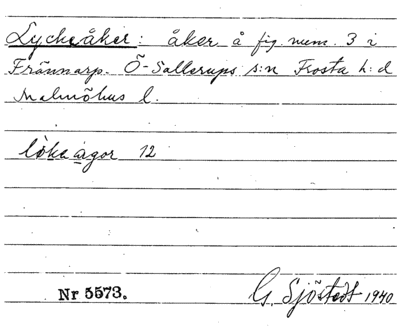 Lyckeåker: åker å fig. num. 3 i
Frännarp. Ö-Sallerups s:n Frosta h:d
Malmöhus l.
löke ågor 12
Nr 5573.
G. Sjöstedt 1940